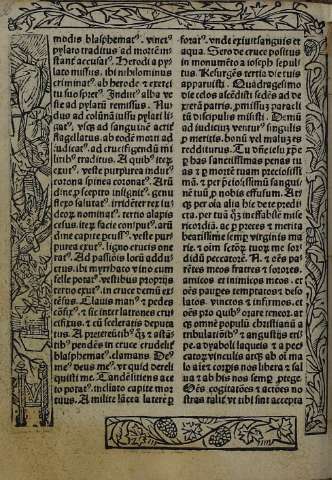 modis blasphemat᷒. vinct᷒
pylato traditus ad mortē in
stanť accusat᷒. Herodi a py
lato missus. ibi nihilominus
criminat᷒. ab herode ⁊ exerci
tu suo spret᷒. Induit᷒ alba ve
ste ad pylatū remissus. Nu
dus ad colūnā iussu pylati li
gat᷒.
flagellatus. ab eodē morti ad
iudicat᷒. ad crucifigendū mi
litib᷒ traditus. A quib᷒
veste purpurea indut᷒
corona spinea coronat᷒.
dine
nu flexo salutat᷒.
deoꝝ nominat᷒. tertio alapis
cesus.
dine capite peuss᷒. veste pur
purea exut᷒. ligno crucis one
rat᷒. Ad passiōis locū adduct᷒
ibi myrrhato vino cum
felle potat᷒. vestibus proprijs
tertio exut᷒. in cruce demū ex
tēsus. Clauis man᷒ ⁊ pedes
⁊ sic inter latrones cru
cifixus. ⁊ cū sceleratis deputa
tus. A pretereūtib᷒
pendēs in cruce crudelit᷒
blasphemat᷒. clamans De᷒
me᷒ deus me᷒. vt quid dereli
quisti me. Tandē sitiens ace
to potat᷒. inclinato capite mor
tuus. A milite lācea latere per
forat᷒. vnde exiuit sanguis et
aqua. Sero de cruce positus
in monumēto a ioseph sepul
tus. Resurgēs tertia die tuis
apparuisti. Quadragesimo
die celos ascēdisti sedēs ad de
xterā patris.
discipulis misisti. Demū
ad iudiciū ventur᷒ singulis
ꝓ meritis. bonū vel malū es
redditurus. Tu dn̄e iesu xp̄e
ꝑ has sanctissimas penas tu
as ⁊ ꝑ mortē tuam preciosissi
mā. ⁊ per preciosissimū sangui
nē tuū ꝓ nobis effusum.
ꝙ per oīa alia hic de te predi
cta. per tuā ꝙ ineffabilē mise
ricordiā. ac ꝑ preces ⁊ merita
beatissime semꝑ virginis ma
rie. ⁊ oīm scōꝝ tuoꝝ me for
didū peccatorē. N. ⁊ oēs pa
rētes meos fratres ⁊ sorores.
amicos et inimicos meos. et
oēs paupes temptatos ⁊ deso
latos. vinctos ⁊ infirmos. et
oēs pro quib᷒ orare teneor. at
omnē populū christianū a
tribulatiōib᷒ ⁊ angustijs eri
pe. a dyaboli laqueis ⁊ a pec
catoꝝ vinculis ab oī ma
lo aīe ⁊ corpīs nos libera ⁊ sal
ua ⁊ ab his nos semꝑ ꝓtege.
Oēs cogitatōes ⁊ actōes no
stras talis vt tibi sint accepta